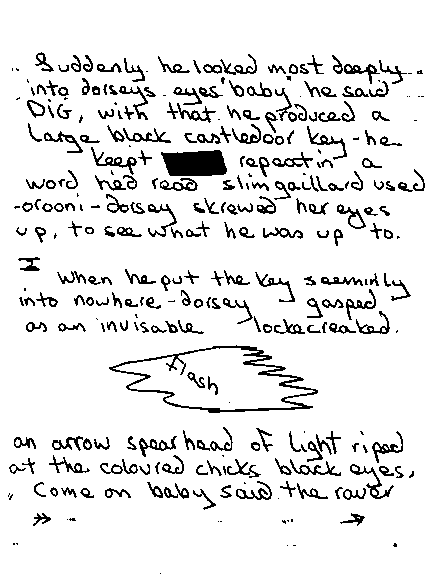 Suddenly he looked most deeply
into dorseys eyes baby he said
DIG, with that he produced a
large black castledoor key - he
keept repeatin a
word he'd read slimgaillard used
-orooni - dorsey skrewed her eyes
up, to see what he was up to.
I
When he put the key seeminly
into nowhere - dorsey gasped
as an invisable lockcreaked.
flash
an arrow spearhead of light riped
at the coloured chicks black eyes,
Come on baby said the raver